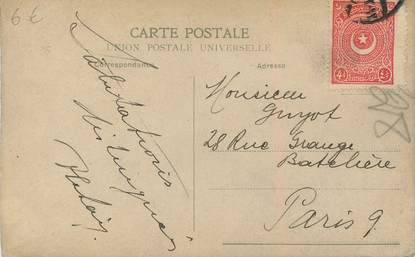 6 €
CARTE POSTALE
UNION POSTALE UNIVERSELLE
Correspondance
Adresse
Salutations
distinguées
Monsieur
Guyot
28 Rue Grange
Batelière
Paris 9.